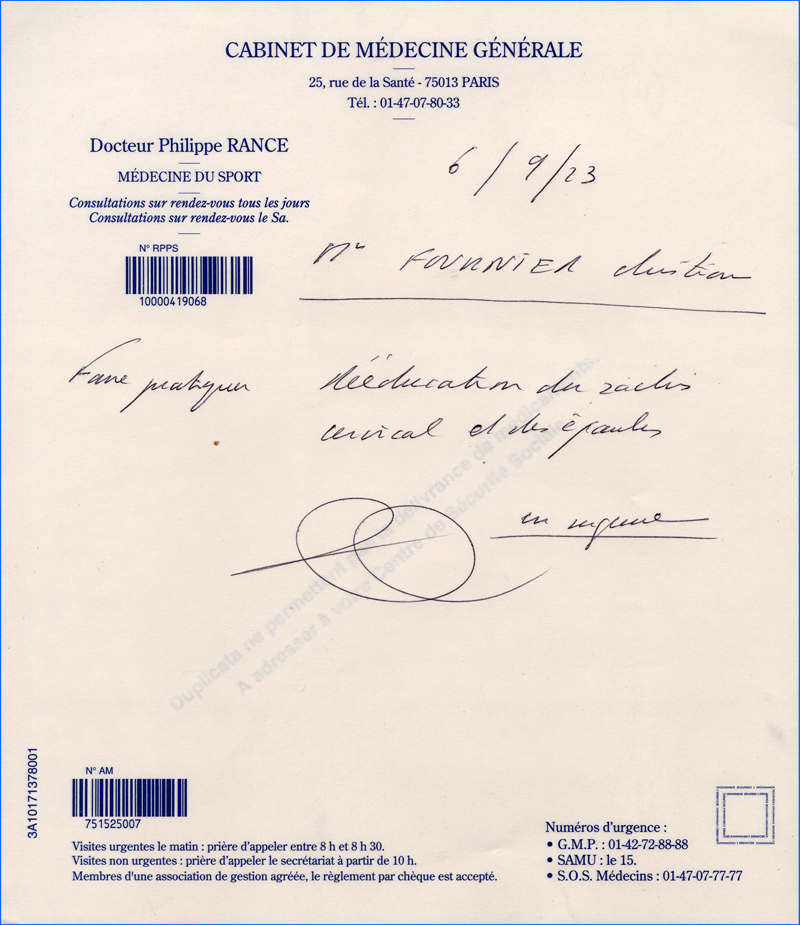 CABINET DE MÉDECINE GÉNÉRALE
25, rue de la Santé - 75013 PARIS
Tél. : 01-47-07-80-33
Docteur Philippe RANCE
MÉDECINE DU SPORT
Consultations sur rendez-vous tous les jours
Consultations sur rendez-vous le Sa.
6/9/23
N° RPPS
10000419068
Mr FOURNIER Christian
Faire pratiquer rééducation du rachis
cervical et des épaules
en urgence
Duplicata ne permettant pas la délivrance de médicaments.
A adresser à votre Centre de Sécurité Sociale
3A10171378001
N° AM
751525007
Visites urgentes le matin : prière d'appeler entre 8 h et 8 h 30.
Visites non urgentes : prière d'appeler le secrétariat à partir de 10 h.
Membres d'une association de gestion agréée, le règlement par chèque est accepté.
Numéros d'urgence :
• G.M.P. : 01-42-72-88-88
• SAMU : le 15.
• S.O.S. Médecins : 01-47-07-77-77